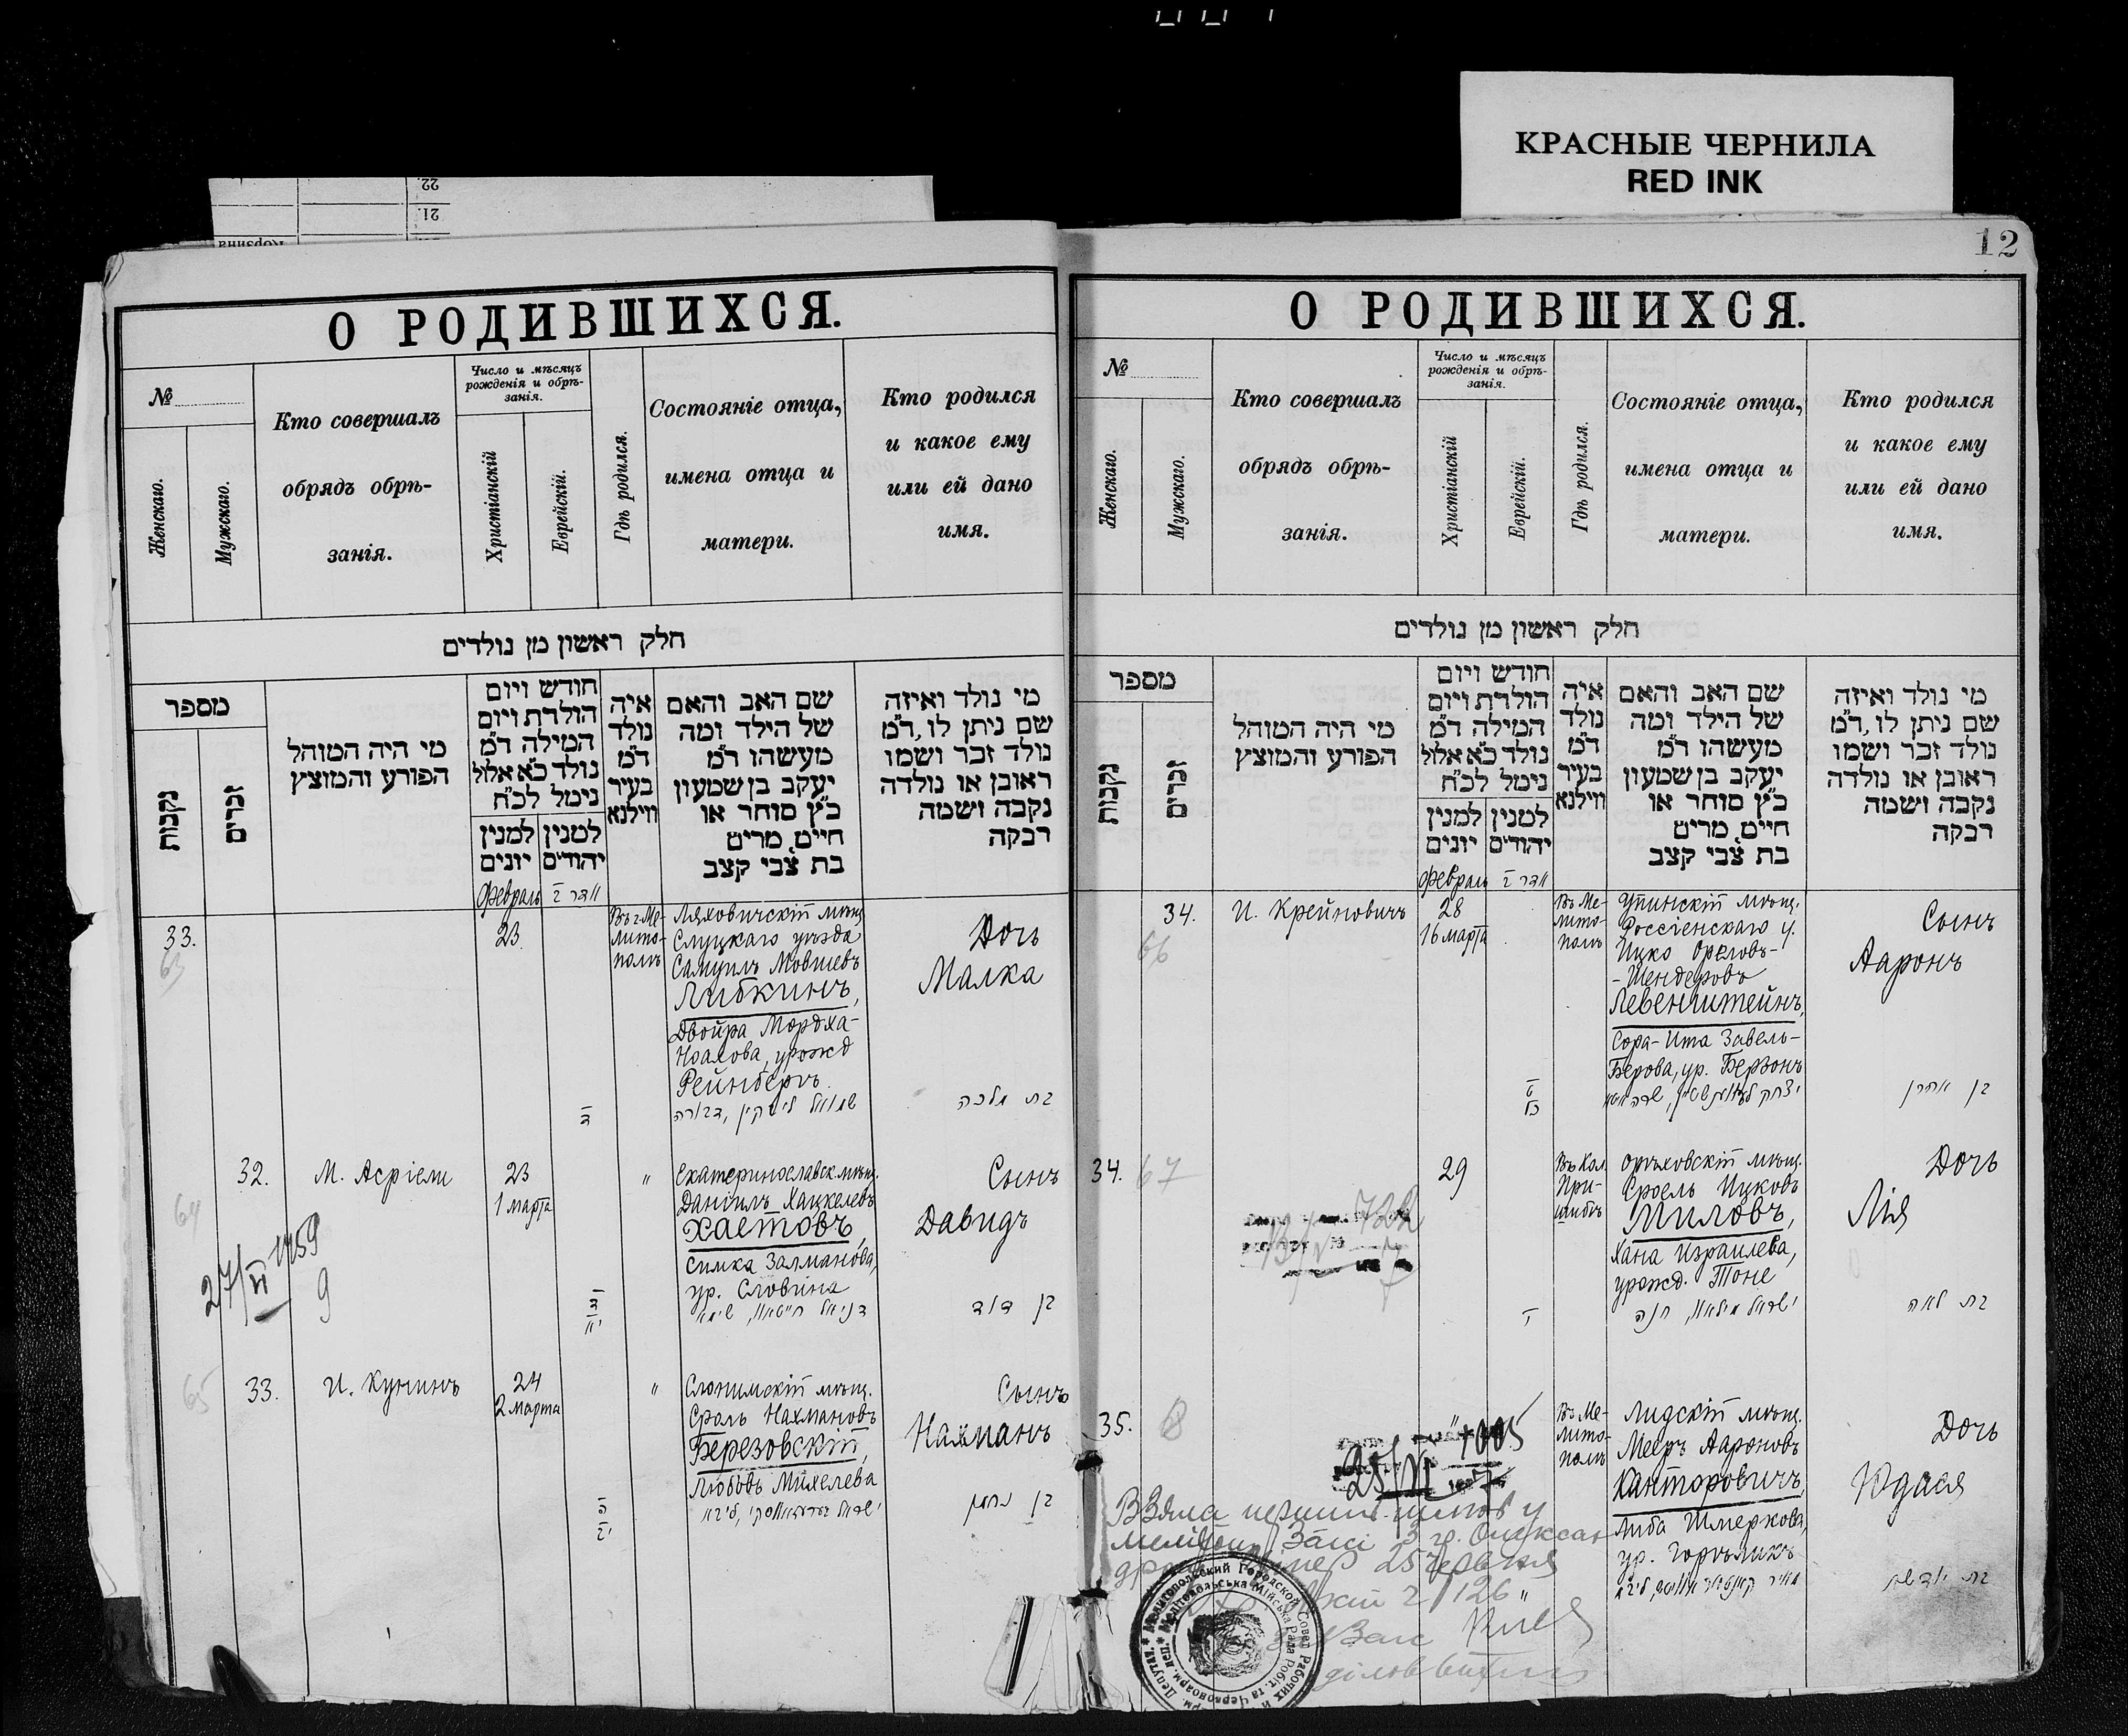 КРАСНЫЕ ЧЕРНИЛА
RED INK
22.
21.
Корзина
12
О РОДИВШИХСЯ.
№
Женскаго.
Мужскаго.
Кто совершалъ
обрядъ обрѣ-
занія.
Число и мѣсяцъ
рожденія и обрѣ-
занія.
Христіанскій
Еврейскій.
Гдѣ родился.
Состояніе отца,
имена отца и
матери.
Кто родился
и какое ему
или ей дано
имя.
חלק ראשון מן נולדים
מספר
נקבות
זכרים
מי היה המוהל
הפורע והמוצץ
חודש ויום
הולדת ויום
המילה ד״מ
נולד כ״א אלול
נימל לכ״ח
למנין יונים
למנין יהודים
איה
נולד
ד״מ
בעיר
ווילנא
שם האב והאם
של הילד ומה
מעשהו ד״מ
יעקב בן שמעון
כ״ץ סוחר או
חיים, מרים
בת צבי קצב
מי נולד ואיזה
שם ניתן לו, ד״מ
נולד זכר ושמו
ראובן או נולדה
נקבה ושמה
רבקה
Февраль
אדר I
33.
63
23.
Въ г. Ме-
лито-
полѣ
Ляховичскій мѣщ.
Слуцкаго уѣзда
Самуилъ Мовшевъ
Либкинъ,
Двойра Мордха-
Ноахова, урожд
Рейнбергъ.
Дочь
Малка
ד
בת מלכה
32.
64
М. Асріели
23
1 марта
"
Екатеринославск. мѣщ.
Даніилъ Хацкелевъ
Хаетовъ,
Симка Залманова,
ур. Словина
Сынъ
Давидъ
27/VI 1959
9
בן דוד
33.
65
И. Кунинъ
24
2 марта
"
Слонимскій мѣщ.
Сроль Нахмановъ
Березовскій,
Любовь Михелева
Сынъ
Нахманъ
בן נחמן
О РОДИВШИХСЯ.
№
Женскаго.
Мужскаго.
Кто совершалъ
обрядъ обрѣ-
занія.
Число и мѣсяцъ
рожденія и обрѣ-
занія.
Христіанскій
Еврейскій.
Гдѣ родился.
Состояніе отца,
имена отца и
матери.
Кто родился
и какое ему
или ей дано
имя.
חלק ראשון מן נולדים
מספר
נקבות
זכרים
מי היה המוהל
הפורע והמוצץ
חודש ויום
הולדת ויום
המילה ד״מ
נולד כ״א אלול
נימל לכ״ח
למנין יונים
למנין יהודים
איה
נולד
ד״מ
בעיר
ווילנא
שם האב והאם
של הילד ומה
מעשהו ד״מ
יעקב בן שמעון
כ״ץ סוחר או
חיים, מרים
בת צבי קצב
מי נולד ואיזה
שם ניתן לו, ד״מ
נולד זכר ושמו
ראובן או נולדה
נקבה ושמה
רבקה
Февраль
אדר I
34.
66
И. Крейновичъ
28
16 марта
Въ Ме-
лито-
полѣ
Упинскій мѣщ.
Россіенскаго у.
Ицко Ореловъ-
-Шендеровъ
Левенштейнъ,
Сора-Ита Завель-
Берова, ур. Берзонъ
Сынъ
Ааронъ
בן אהרן
34.
67
29
Въ Кол.
При-
шибѣ
Орѣховскій мѣщ.
Сроель Ицковъ
Миловъ,
Хана Израилева,
урожд. Тоне
Дочь
Лія
722
בת לאה
35.
"
Въ Ме-
лито-
полѣ
Лидскій мѣщ.
Мееръ Аароновъ
Канторовичъ,
Либа Шмеркова,
ур. Горѣликъ
Дочь
Юдася
25/VI
Взяла
25 червня
Мелитопольский Городской Совет Рабочих и
Мелітопольська Міська Рада Робіт. та Червоноарм. деп.